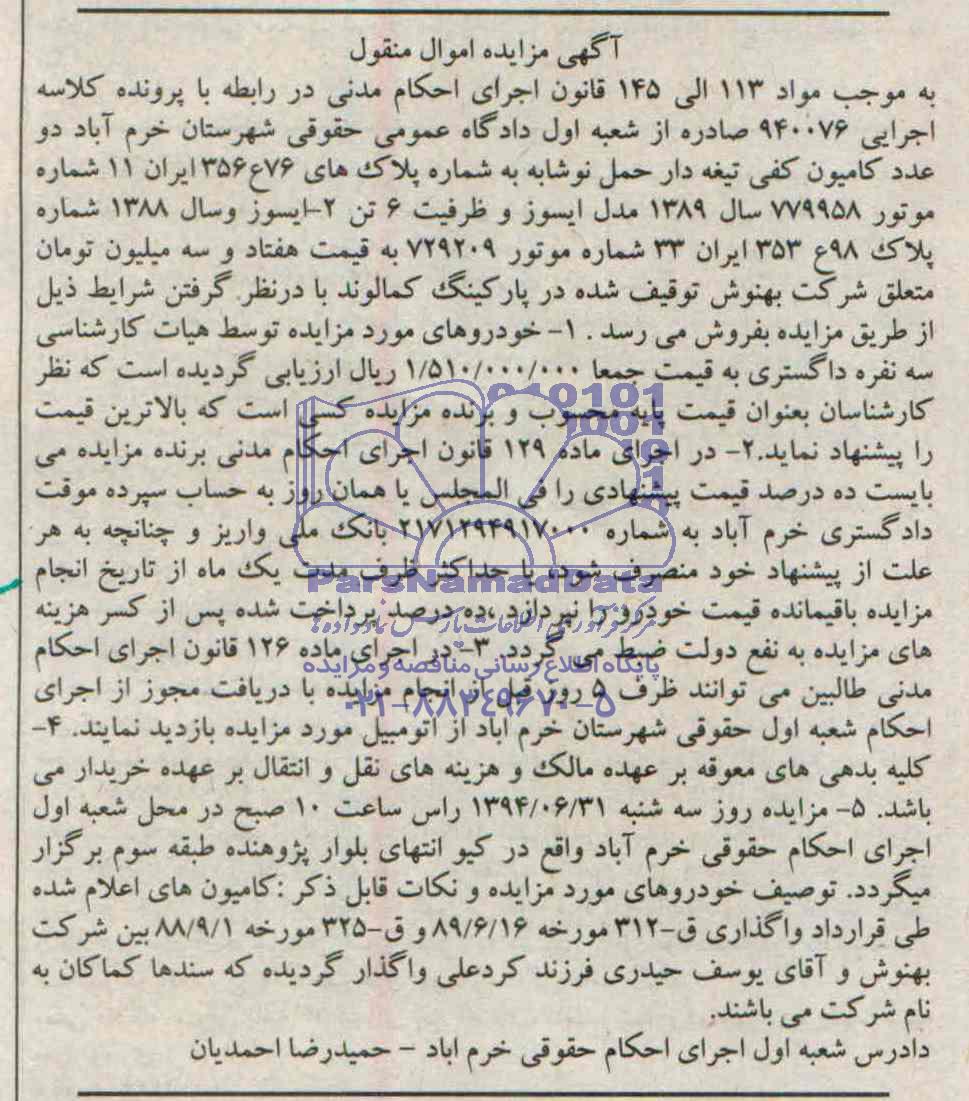 آگهی مزایده اموال منقول
به موجب مواد ۱۱۳ الی ۱۴۵ قانون اجرای احکام مدنی در رابطه با پرونده کلاسه
اجرایی ۹۴۰۰۷۶ صادره از شعبه اول دادگاه عمومی حقوقی شهرستان خرم آباد دو
عدد کامیون کفی تیغه دار حمل نوشابه به شماره پلاک های ۷۶ع۳۵۶ ایران ۱۱ شماره
موتور ۷۷۹۹۵۸ سال ۱۳۸۹ مدل ایسوز و ظرفیت ۶ تن ۲-ایسوز وسال ۱۳۸۸ شماره
پلاک ۹۸ع ۳۵۳ ایران ۳۳ شماره موتور ۷۲۹۲۰۹ به قیمت هفتاد و سه میلیون تومان
متعلق شرکت بهنوش توقیف شده در پارکینگ کمالوند با درنظر گرفتن شرایط ذیل
از طریق مزایده بفروش می رسد . ۱- خودروهای مورد مزایده توسط هیات کارشناسی
سه نفره داگستری به قیمت جمعا ۱/۵۱۰/۰۰۰/۰۰۰ ریال ارزیابی گردیده است که نظر
کارشناسان بعنوان قیمت پایه محسوب و برنده مزایده کسی است که بالاترین قیمت
را پیشنهاد نماید.۲- در اجرای ماده ۱۲۹ قانون اجرای احکام مدنی برنده مزایده می
بایست ده درصد قیمت پیشنهادی را فی المجلس یا همان روز به حساب سپرده موقت
دادگستری خرم آباد به شماره ۲۱۷۱۲۹۴۹۱۷۰۰۰ بانک ملی واریز و چنانچه به هر
علت از پیشنهاد خود منصرف شود، یا حداکثر ظرف مدت یک ماه از تاریخ انجام
مزایده باقیمانده قیمت خودرو را نپردازد ،ده درصد پرداخت شده پس از کسر هزینه
های مزایده به نفع دولت ضبط می گردد. ۳- در اجرای ماده ۱۲۶ قانون اجرای احکام
مدنی طالبین می توانند ظرف ۵ روز قبل از انجام مزایده با دریافت مجوز از اجرای
احکام شعبه اول حقوقی شهرستان خرم اباد از اتومبیل مورد مزایده بازدید نمایند. ۴-
کلیه بدهی های معوقه بر عهده مالک و هزینه های نقل و انتقال بر عهده خریدار می
باشد. ۵- مزایده روز سه شنبه ۱۳۹۴/۰۶/۳۱ راس ساعت ۱۰ صبح در محل شعبه اول
اجرای احکام حقوقی خرم آباد واقع در کیو انتهای بلوار پژوهنده طبقه سوم برگزار
میگردد. توصیف خودروهای مورد مزایده و نکات قابل ذکر :کامیون های اعلام شده
طی قرارداد واگذاری ق-۳۱۲ مورخه ۸۹/۶/۱۶ و ق-۳۲۵ مورخه ۸۸/۹/۱ بین شرکت
بهنوش و آقای یوسف حیدری فرزند کردعلی واگذار گردیده که سندها کماکان به
نام شرکت می باشند.
دادرس شعبه اول اجرای احکام حقوقی خرم اباد - حمیدرضا احمدیان
ParsNamadData
پایگاه اطلاع رسانی مناقصه و مزایده
۰۲۱-۸۸۳۴۹۶۷۰-۵